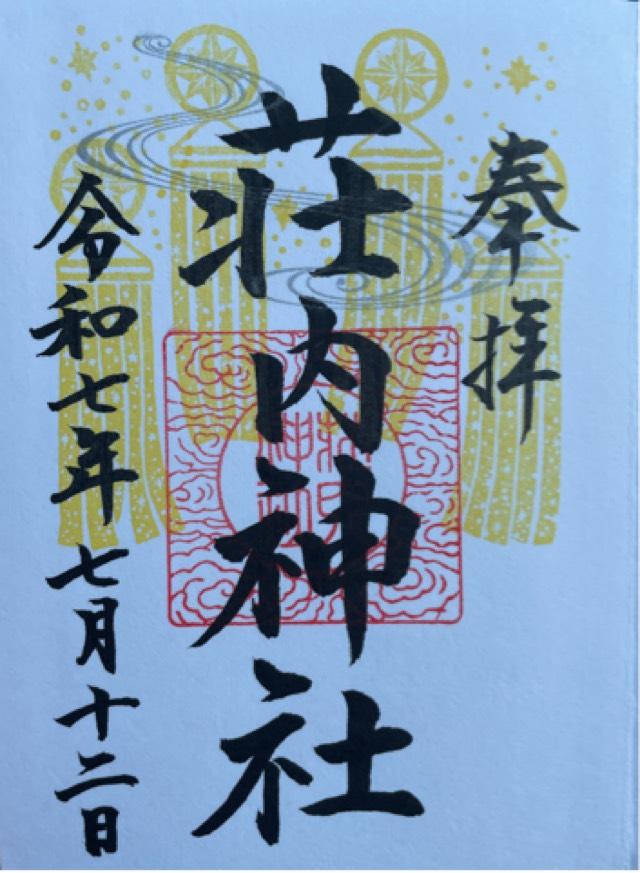 奉拝
荘内神社
令和七年七月十二日